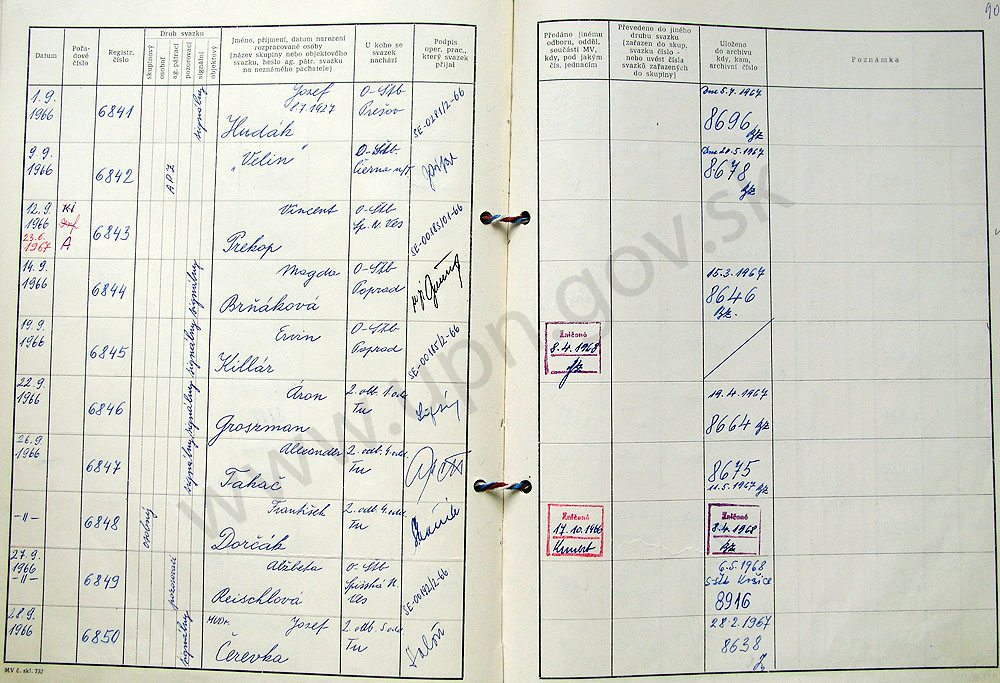 90
Datum
Pořa-
dové
číslo
Registr.
číslo
Druh svazku
skupinový
osobní
ag. pátrací
pozorovací
signální
objektový
Jméno, příjmení, datum narození
rozpracované osoby
(název skupiny nebo objektového
svazku, heslo ag. pátr. svazku
na neznámého pachatele)
U koho se
svazek
nachází
Podpis
oper. prac.,
který svazek
přijal
Předáno jinému
odboru, odděl.
součásti MV,
kdy, pod jakým
čís. jednacím
Převedeno do jiného
druhu svazku
(zařazen do skup.
svazku číslo -
nebo uvést čísla
svazků zařazených
do skupiny)
Uloženo
do archivu
kdy, kam,
archivní číslo
Poznámka
1.9.
1966
6841
signálny
Jozef
8.7.1927
Hudák
O-ŠtB
Prešov
SE-0281/2-66
Dne 5.4.1967
8696
9.9.
1966
6842
APZ
„Velin"
O-ŠtB
Čierna n/T
8678
12.9.
1966
23.6.
1967
A
6843
Vincent
Prekop
O-ŠtB
Sp. N. Ves
SE-00185/01-66
14.9.
1966
6844
signálny
Magda
Brňáková
O-ŠtB
Poprad
15.3.1967
8646
19.9.
1966
6845
signálny
Ervin
Killár
O-ŠtB
Poprad
SE-00185/2-66
Zničené
8.4.1968
22.9.
1966
6846
signálny
Áron
Grosrman
2. odb. 1. odd.
Tu
19.4.1967
8664
26.9.
1966
6847
signálny
Alexander
Takač
2. odb. 4. odd.
Tu
8675
11.5.1967
-II-
6848
osobný
František
Dorčák
2. odb. 4. odd.
Tu
Zničené
17.10.1966
Zničené
8.4.1968
27.9.
1966
-II-
6849
pozorovací
Alžbeta
Reischlová
O-ŠtB
Spišská N.
Ves
SE-00192/2-66
6.5.1968
S-ŠtB Košice
8916
28.9.
1966
6850
signálny
MUDr.
Jozef
Čerevka
2. odb. 5. odd.
Tu
28.2.1967
8638
MV č. skl. 732
www.upn.gov.sk